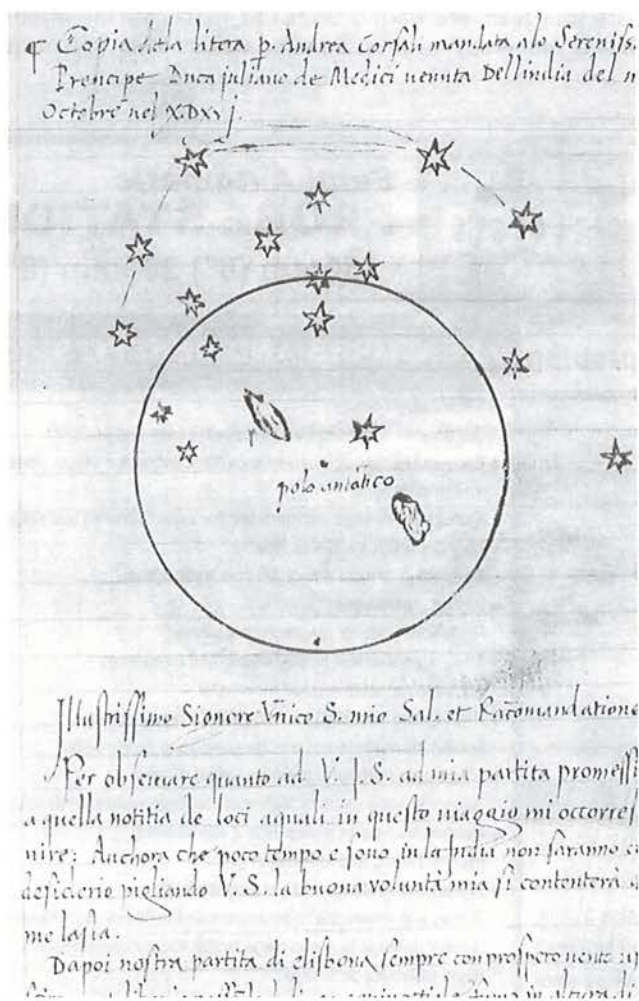 ¶ Copia dela litera p. Andrea Corsali mandata alo Sereniss.
Prencipe Duca juliano de Medici venuta Dellindia del
Octobre nel XDxvj.
polo antatico
Illustrissimo Signore Vnico S. mio Sal. et Racomandatione
Per observare quanto ad V. I. S. ad mia partita promessi
a quella notitia de loci aquali in questo viaggio mi
nire: Anchora che poco tempo e sono in la India non saranno
desiderio pigliando V. S. la buona voluntà mia si contenterà
me lassa.
Dapoi nostra partita di elisbona sempre con prospero vento